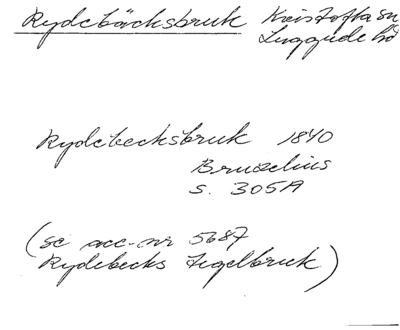 Rydebäcksbruk Kristofta sn
Luggude hd
Rydebecksbruk 1840
Bruzelius
s. 305A
(se acc-nr 5687
Rydebecks Tegelbruk)